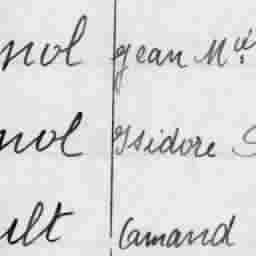 nol Jean Mie
nol Isidore
ult Camand